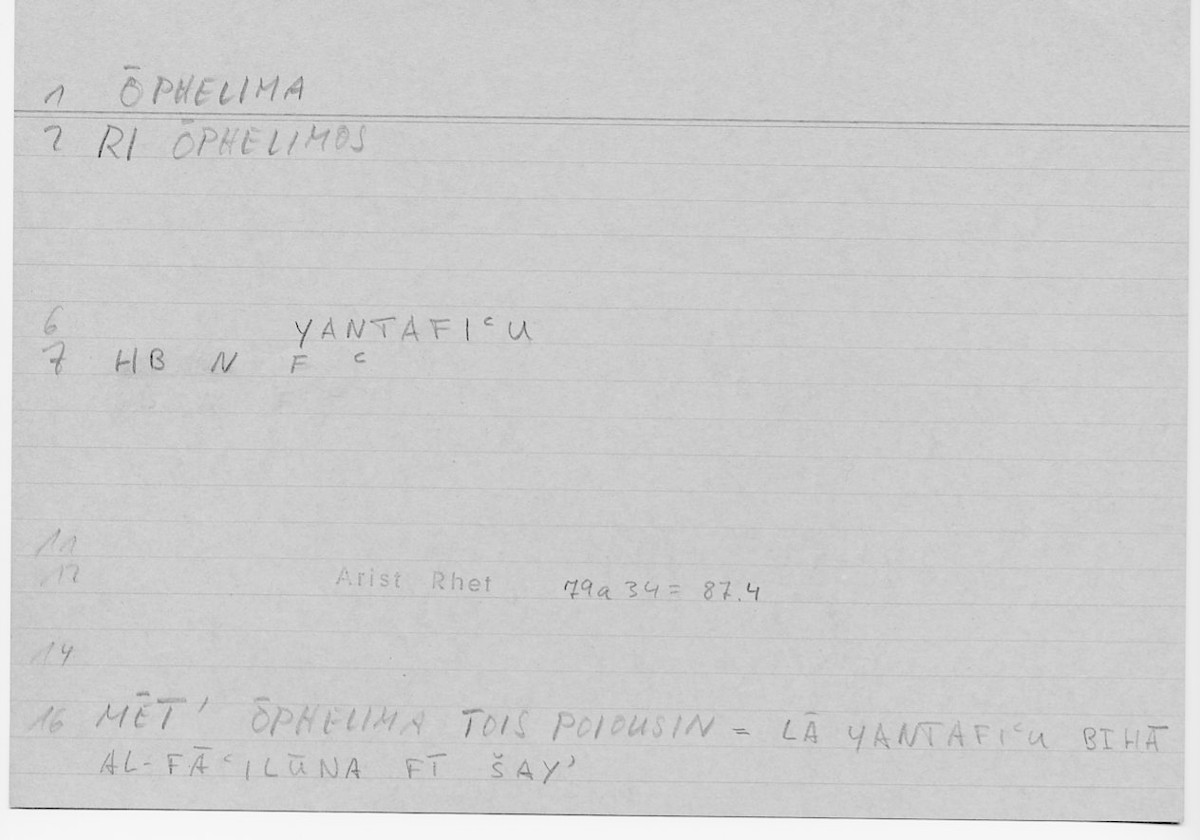 1 ŌPHELIMA
2 RI ŌPHELIMOS
6 YANTAFIʿU
7 HB N F ʿ
11
12 Arist Rhet 79a 34 = 87.4
14
16 MĒT' ŌPHELIMA TOIS POIOUSIN = LĀ YANTAFIʿU BIHĀ
AL-FĀʿILŪNA FĪ ŠAY'